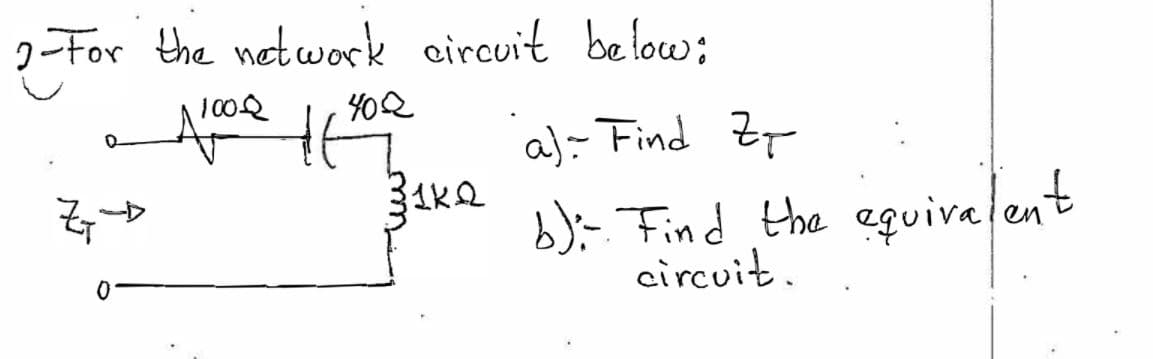 2-For the network circuit below:
100Ω
40Ω
a):- Find Z_T
1KΩ
Z_T →
b):- Find the equivalent
circuit.